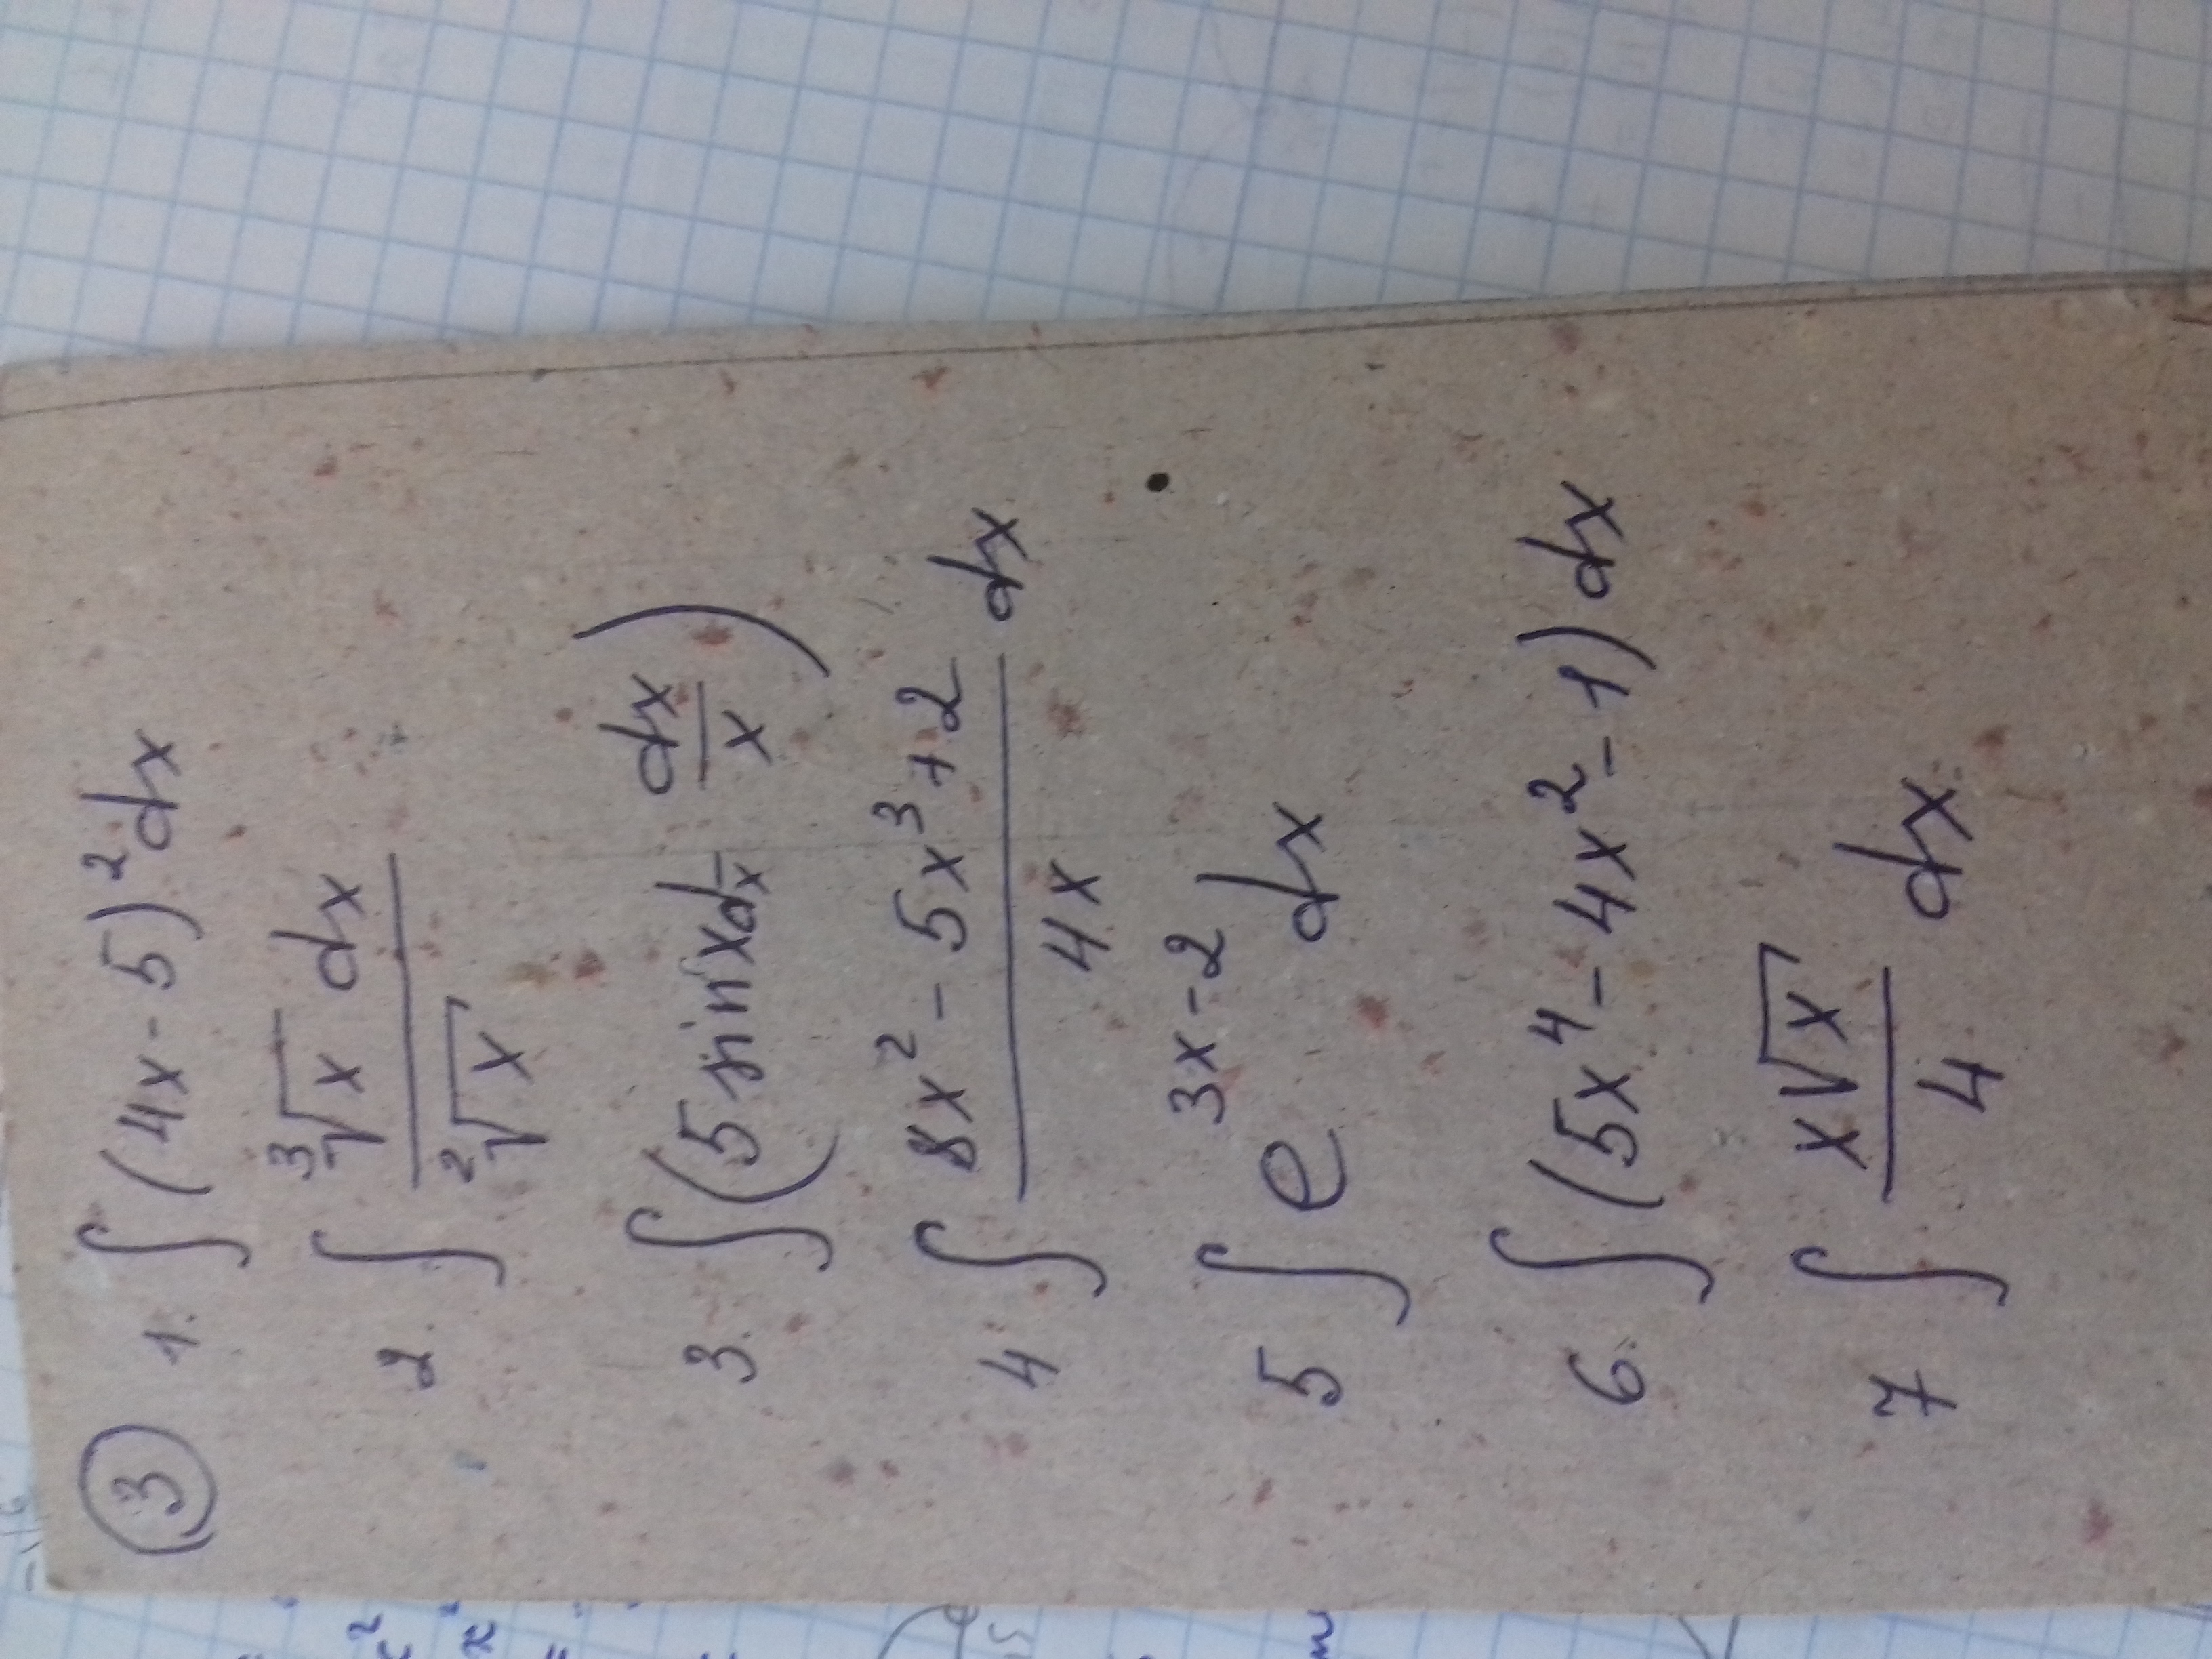 ③ 1. ∫(4x-5)²dx
2. ∫ ∛x dx / ²√x
3. ∫(5 sin x dx - dx/x)
4 ∫ (8x² - 5x³ + 2)/4x dx
5 ∫ e^(3x-2) dx
6. ∫(5x⁴ - 4x² - 1) dx
7 ∫ x√x/4 dx